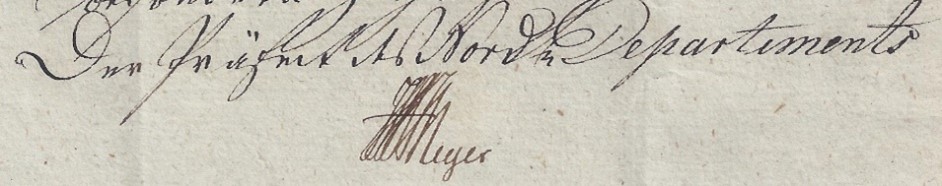 Der Präfect des Nord Departements
Meyer